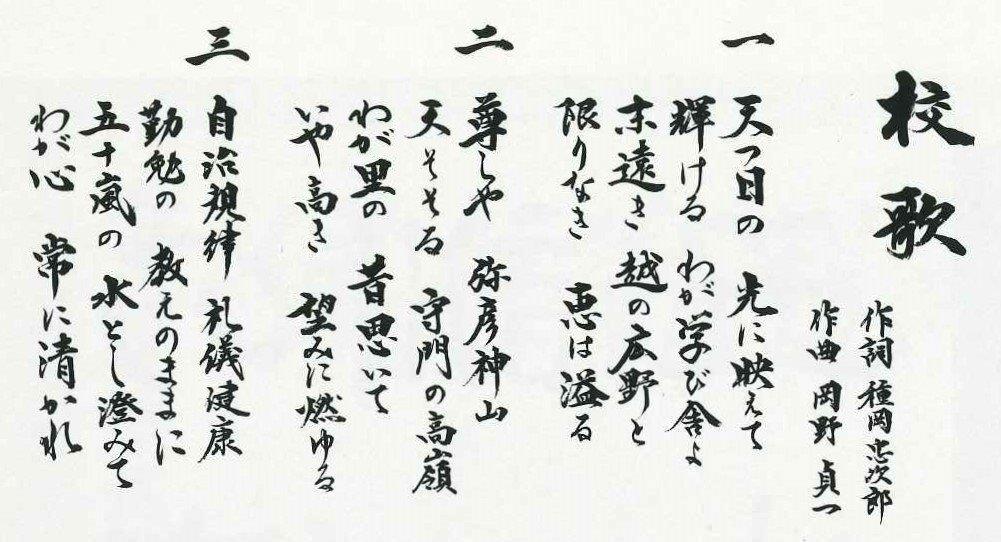 校歌
作詞 種岡忠次郎
作曲 岡野貞一
一
天つ日の 光に映えて
輝ける わが学び舎よ
末遠き 越の広野と
限りなき 恵は溢る
二
尊しや 弥彦神山
天そそる 守門の高嶺
わが里の 昔思いて
いや高き 望みに燃ゆる
三
自治規律 礼儀健康
勤勉の 教えのままに
五十嵐の 水とし澄みて
わが心 常に清かれ